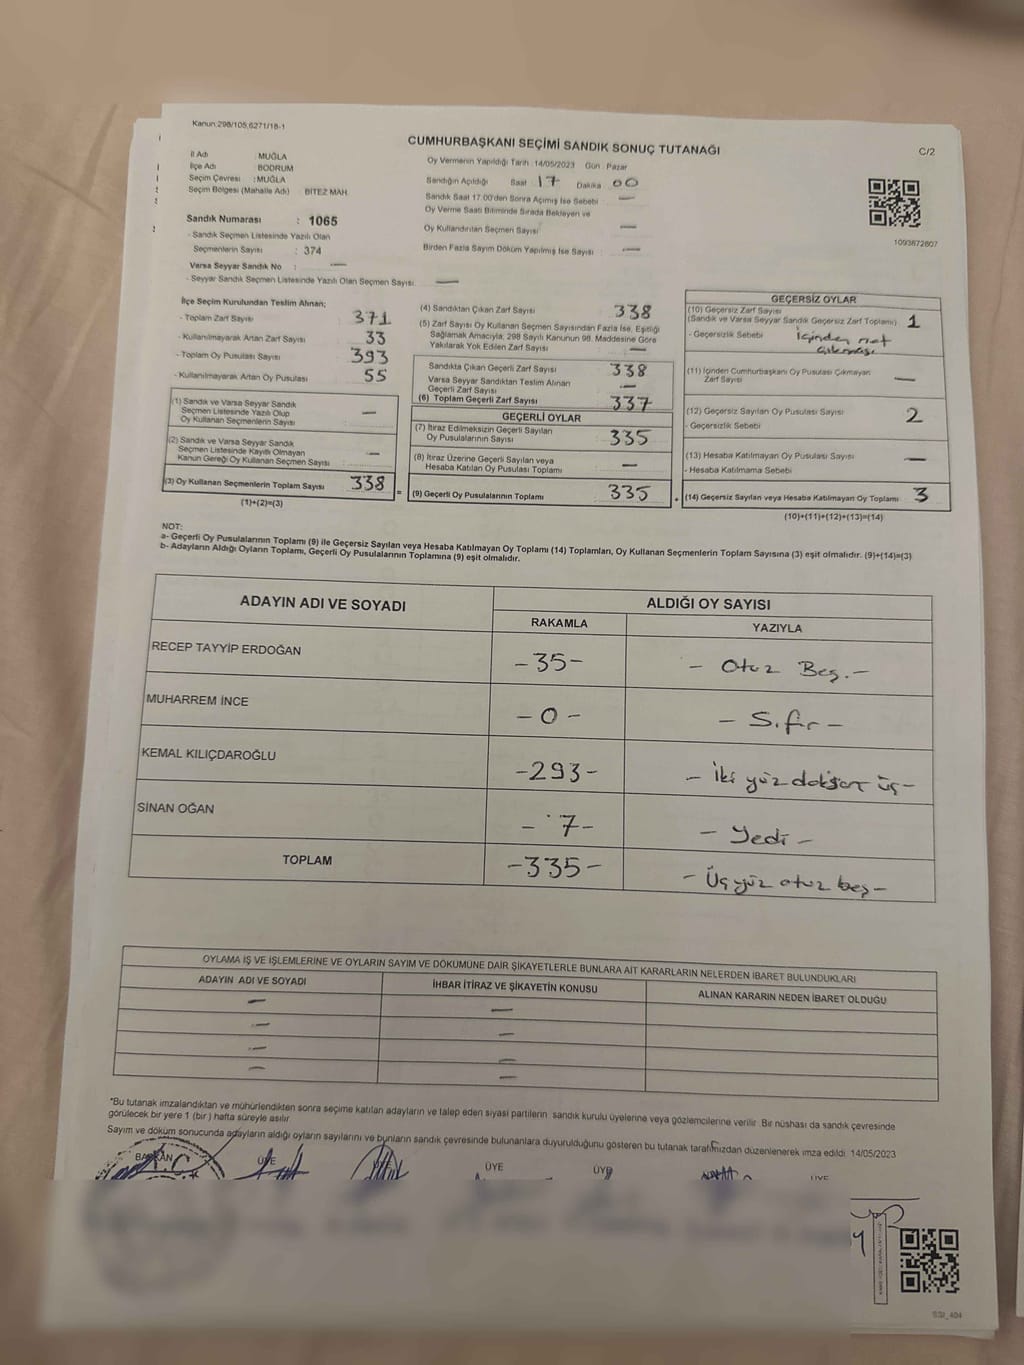 Kanun:298/105,6271/18-1
CUMHURBAŞKANI SEÇİMİ SANDIK SONUÇ TUTANAĞI
C/2
İl Adı : MUĞLA
İlçe Adı : BODRUM
Seçim Çevresi : MUĞLA
Seçim Bölgesi (Mahalle Adı) BİTEZ MAH.
Sandık Numarası : 1065
- Sandık Seçmen Listesinde Yazılı Olan
Seçmenlerin Sayısı : 374
Varsa Seyyar Sandık No : —
- Seyyar Sandık Seçmen Listesinde Yazılı Olan Seçmen Sayısı: —
Oy Vermenin Yapıldığı Tarih :14/05/2023 Gün : Pazar
Sandığın Açıldığı Saat 17 Dakika 00
Sandık Saat 17:00'den Sonra Açımış İse Sebebi —
Oy Verme Saati Bitiminde Sırada Bekleyen ve
Oy Kullandırılan Seçmen Sayısı —
Birden Fazla Sayım Döküm Yapılmış İse Sayısı : —
1093872807
İlçe Seçim Kurulundan Teslim Alınan;
- Toplam Zarf Sayısı 371
- Kullanılmayarak Artan Zarf Sayısı 33
- Toplam Oy Pusulası Sayısı 393
- Kullanılmayarak Artan Oy Pusulası 55
(1) Sandık ve Varsa Seyyar Sandık
Seçmen Listesinde Yazılı Olup
Oy Kullanan Seçmenlerin Sayısı —
(2) Sandık ve Varsa Seyyar Sandık
Seçmen Listesinde Kayıtlı Olmayan
Kanun Gereği Oy Kullanan Seçmen Sayısı —
(3) Oy Kullanan Seçmenlerin Toplam Sayısı 338
(1)+(2)=(3)
(4) Sandıktan Çıkan Zarf Sayısı 338
(5) Zarf Sayısı Oy Kullanan Seçmen Sayısından Fazla İse, Eşitliği
Sağlamak Amacıyla; 298 Sayılı Kanunun 98. Maddesine Göre
Yakılarak Yok Edilen Zarf Sayısı: —
Sandıkta Çıkan Geçerli Zarf Sayısı 338
Varsa Seyyar Sandıktan Teslim Alınan
Geçerli Zarf Sayısı —
(6) Toplam Geçerli Zarf Sayısı 337
GEÇERLİ OYLAR
(7) İtiraz Edilmeksizin Geçerli Sayılan
Oy Pusulalarının Sayısı 335
(8) İtiraz Üzerine Geçerli Sayılan veya
Hesaba Katılan Oy Pusulası Toplamı —
=
(9) Geçerli Oy Pusulalarının Toplamı 335
+
GEÇERSİZ OYLAR
(10) Geçersiz Zarf Sayısı
(Sandık ve Varsa Seyyar Sandık Geçersiz Zarf Toplamı) 1
- Geçersizlik Sebebi İçinden not
çıkması
(11) İçinden Cumhurbaşkanı Oy Pusulası Çıkmayan
Zarf Sayısı —
(12) Geçersiz Sayılan Oy Pusulası Sayısı 2
- Geçersizlik Sebebi
(13) Hesaba Katılmayan Oy Pusulası Sayısı —
- Hesaba Katılmama Sebebi
(14) Geçersiz Sayılan veya Hesaba Katılmayan Oy Toplamı 3
(10)+(11)+(12)+(13)=(14)
NOT:
a- Geçerli Oy Pusulalarının Toplamı (9) ile Geçersiz Sayılan veya Hesaba Katılmayan Oy Toplamı (14) Toplamları, Oy Kullanan Seçmenlerin Toplam Sayısına (3) eşit olmalıdır. (9)+(14)=(3)
b- Adayların Aldığı Oyların Toplamı, Geçerli Oy Pusulalarının Toplamına (9) eşit olmalıdır.
ADAYIN ADI VE SOYADI ALDIĞI OY SAYISI
RAKAMLA YAZIYLA
RECEP TAYYİP ERDOĞAN -35- - Otuz Beş.-
MUHARREM İNCE -0- - Sıfır -
KEMAL KILIÇDAROĞLU -293- - İki yüz doksan üç-
SİNAN OĞAN -7- - Yedi -
TOPLAM -335- - Üçyüz otuz beş-
OYLAMA İŞ VE İŞLEMLERİNE VE OYLARIN SAYIM VE DÖKÜMÜNE DAİR ŞİKAYETLERLE BUNLARA AİT KARARLARIN NELERDEN İBARET BULUNDUKLARI
ADAYIN ADI VE SOYADI İHBAR İTİRAZ VE ŞİKAYETİN KONUSU ALINAN KARARIN NEDEN İBARET OLDUĞU
— —
— —
— —
— —
*Bu tutanak imzalandıktan ve mühürlendikten sonra seçime katılan adayların ve talep eden siyasi partilerin sandık kurulu üyelerine veya gözlemcilerine verilir. Bir nüshası da sandık çevresinde
görülecek bir yere 1 (bir) hafta süreyle asılır.
Sayım ve döküm sonucunda adayların aldığı oyların sayılarını ve bunların sandık çevresinde bulunanlara duyurulduğunu gösteren bu tutanak tarafımızdan düzenlenerek imza edildi. 14/05/2023
BAŞKAN ÜYE ÜYE ÜYE ÜYE
T.C.
SSI_404